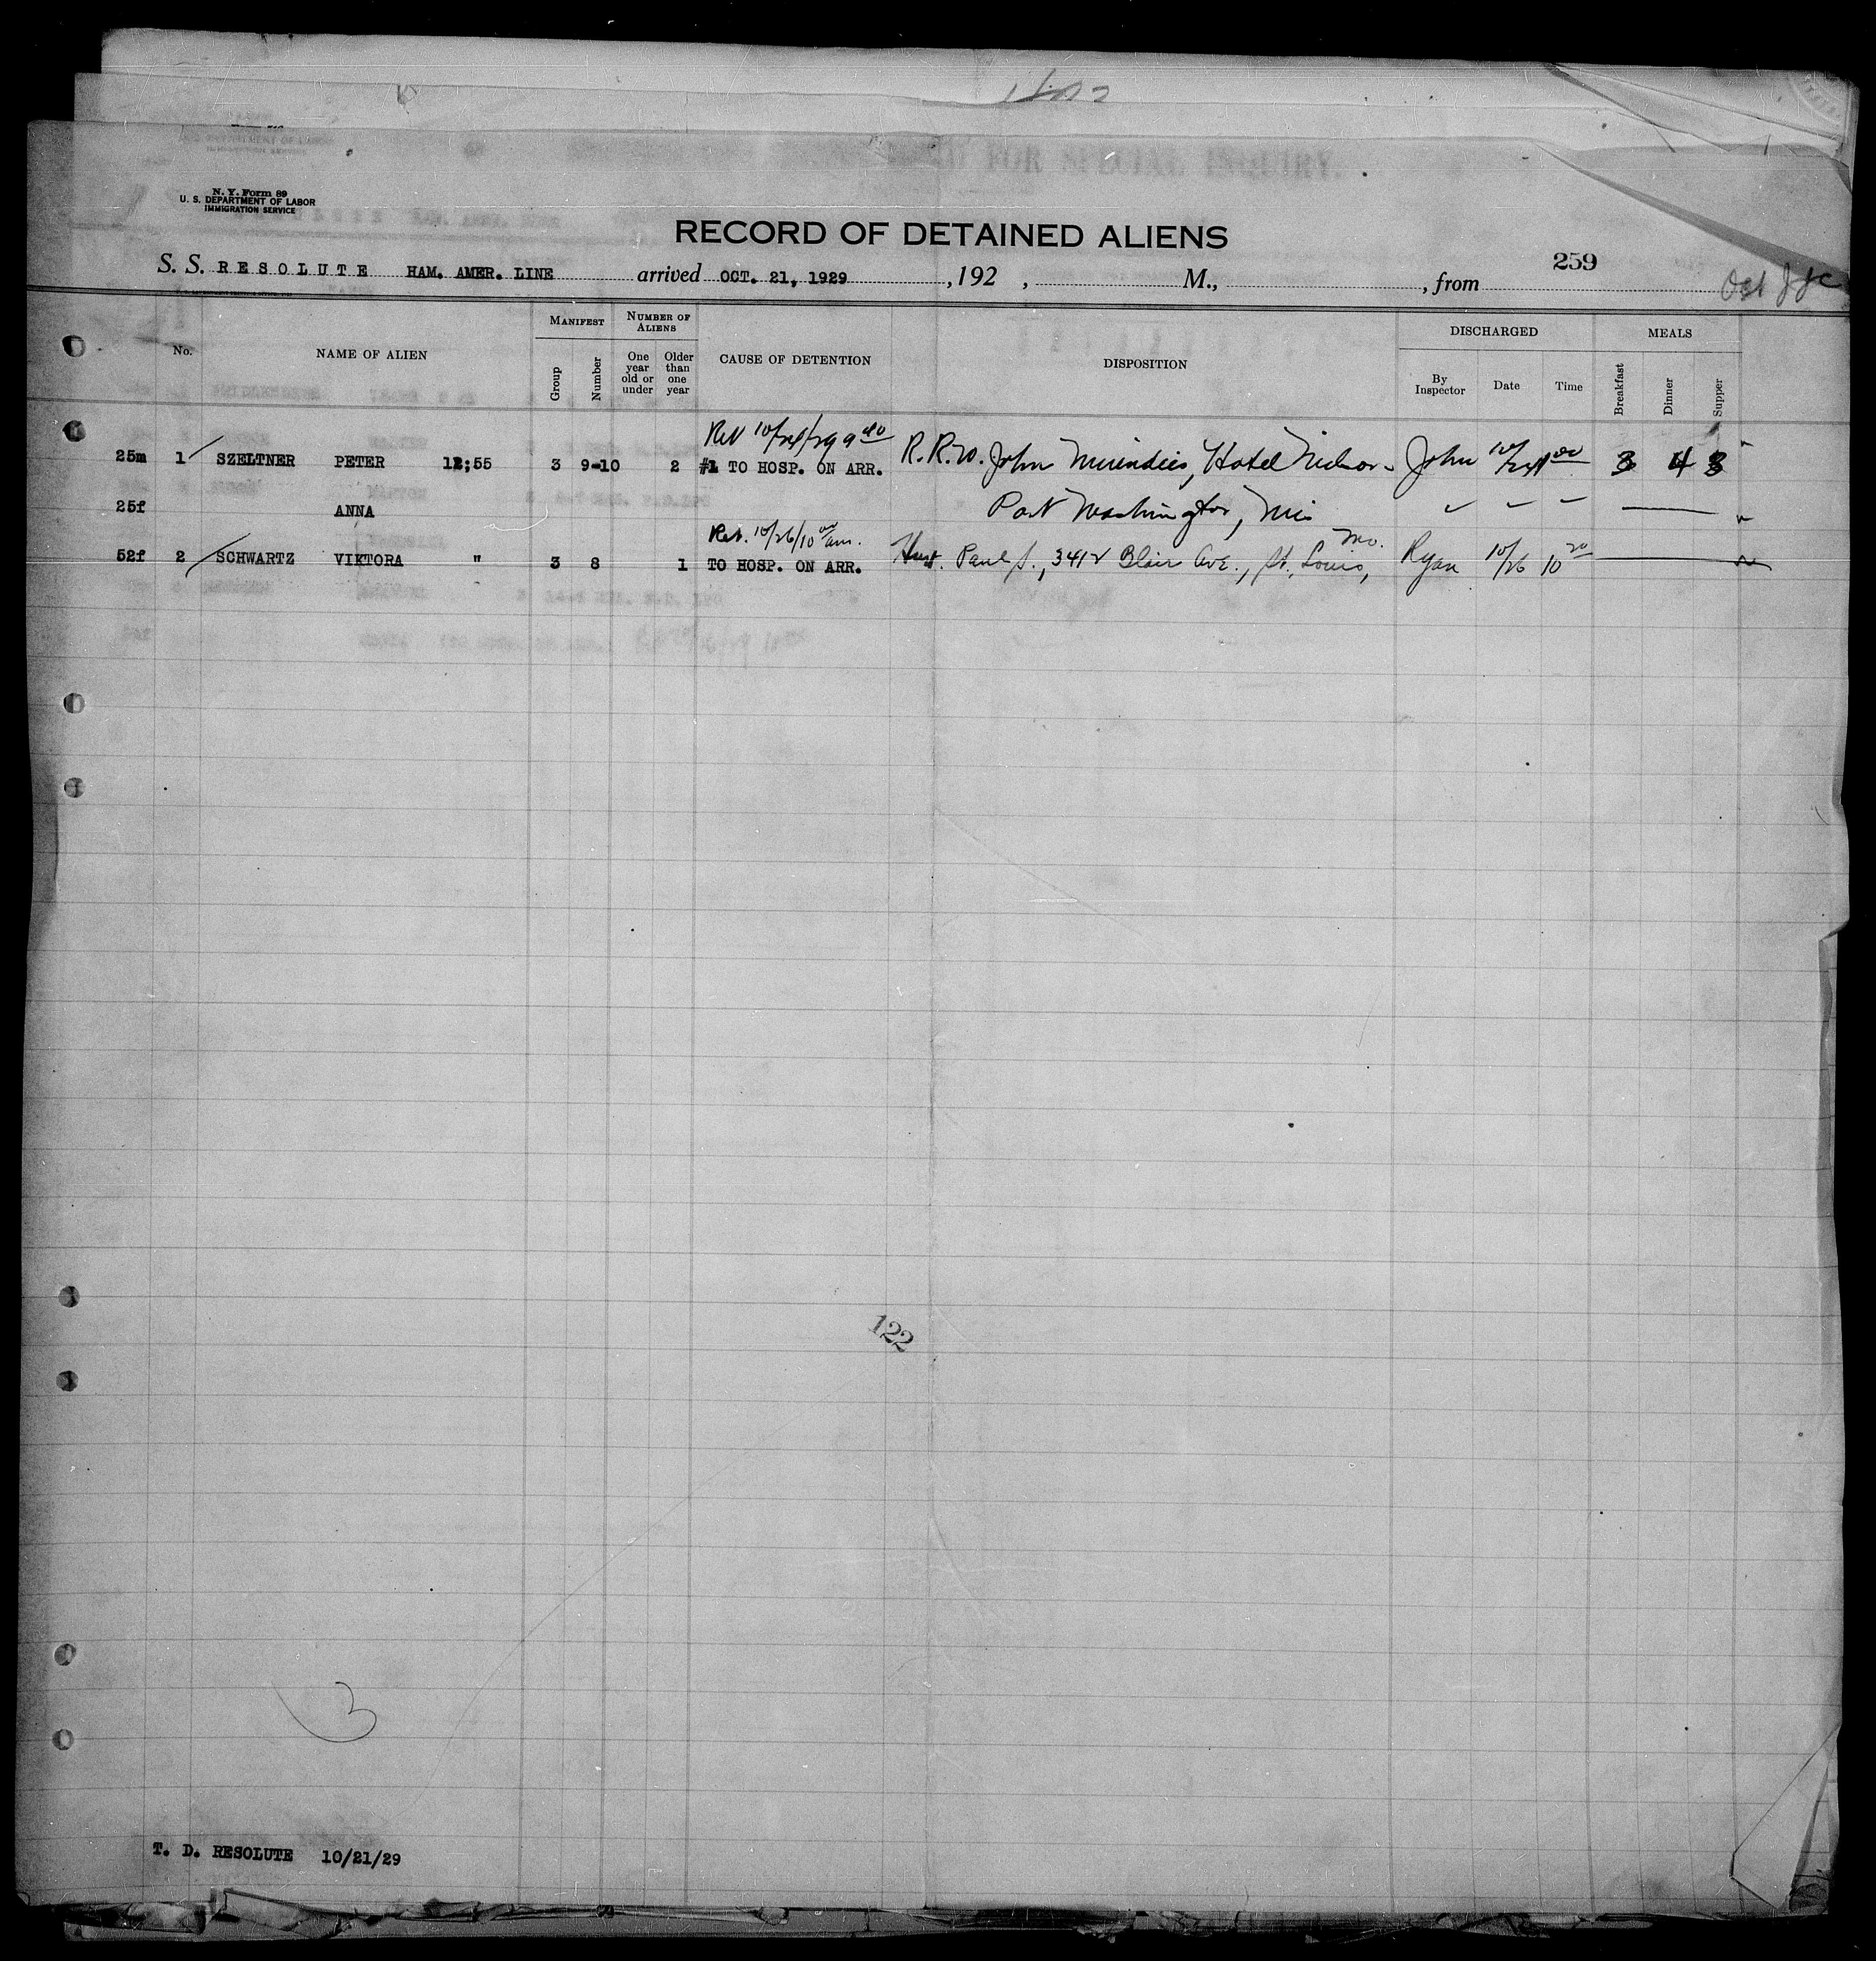 N. Y. Form 89
U. S. DEPARTMENT OF LABOR
IMMIGRATION SERVICE
RECORD OF DETAINED ALIENS
259
S. S. RESOLUTE HAM. AMER. LINE arrived OCT. 21, 1929, 192 , M., , from
MANIFEST NUMBER OF ALIENS DISCHARGED MEALS
No. NAME OF ALIEN Group Number One year old or under Older than one year CAUSE OF DETENTION DISPOSITION By Inspector Date Time Breakfast Dinner Supper
25m 1 SZELTNER PETER 12;55 3 9-10 2 #1 TO HOSP. ON ARR. R.R.W. John Hotel John 3 4 3
25f ANNA Port Washington, Wis
Ret. 10/26/10 00 am. Mo.
52f 2 SCHWARTZ VIKTORA " 3 8 1 TO HOSP. ON ARR. Husb. Paul S., 3412 Blair Ave., St. Louis, Ryan 10/26 10 20
122
3
T. D. RESOLUTE 10/21/29